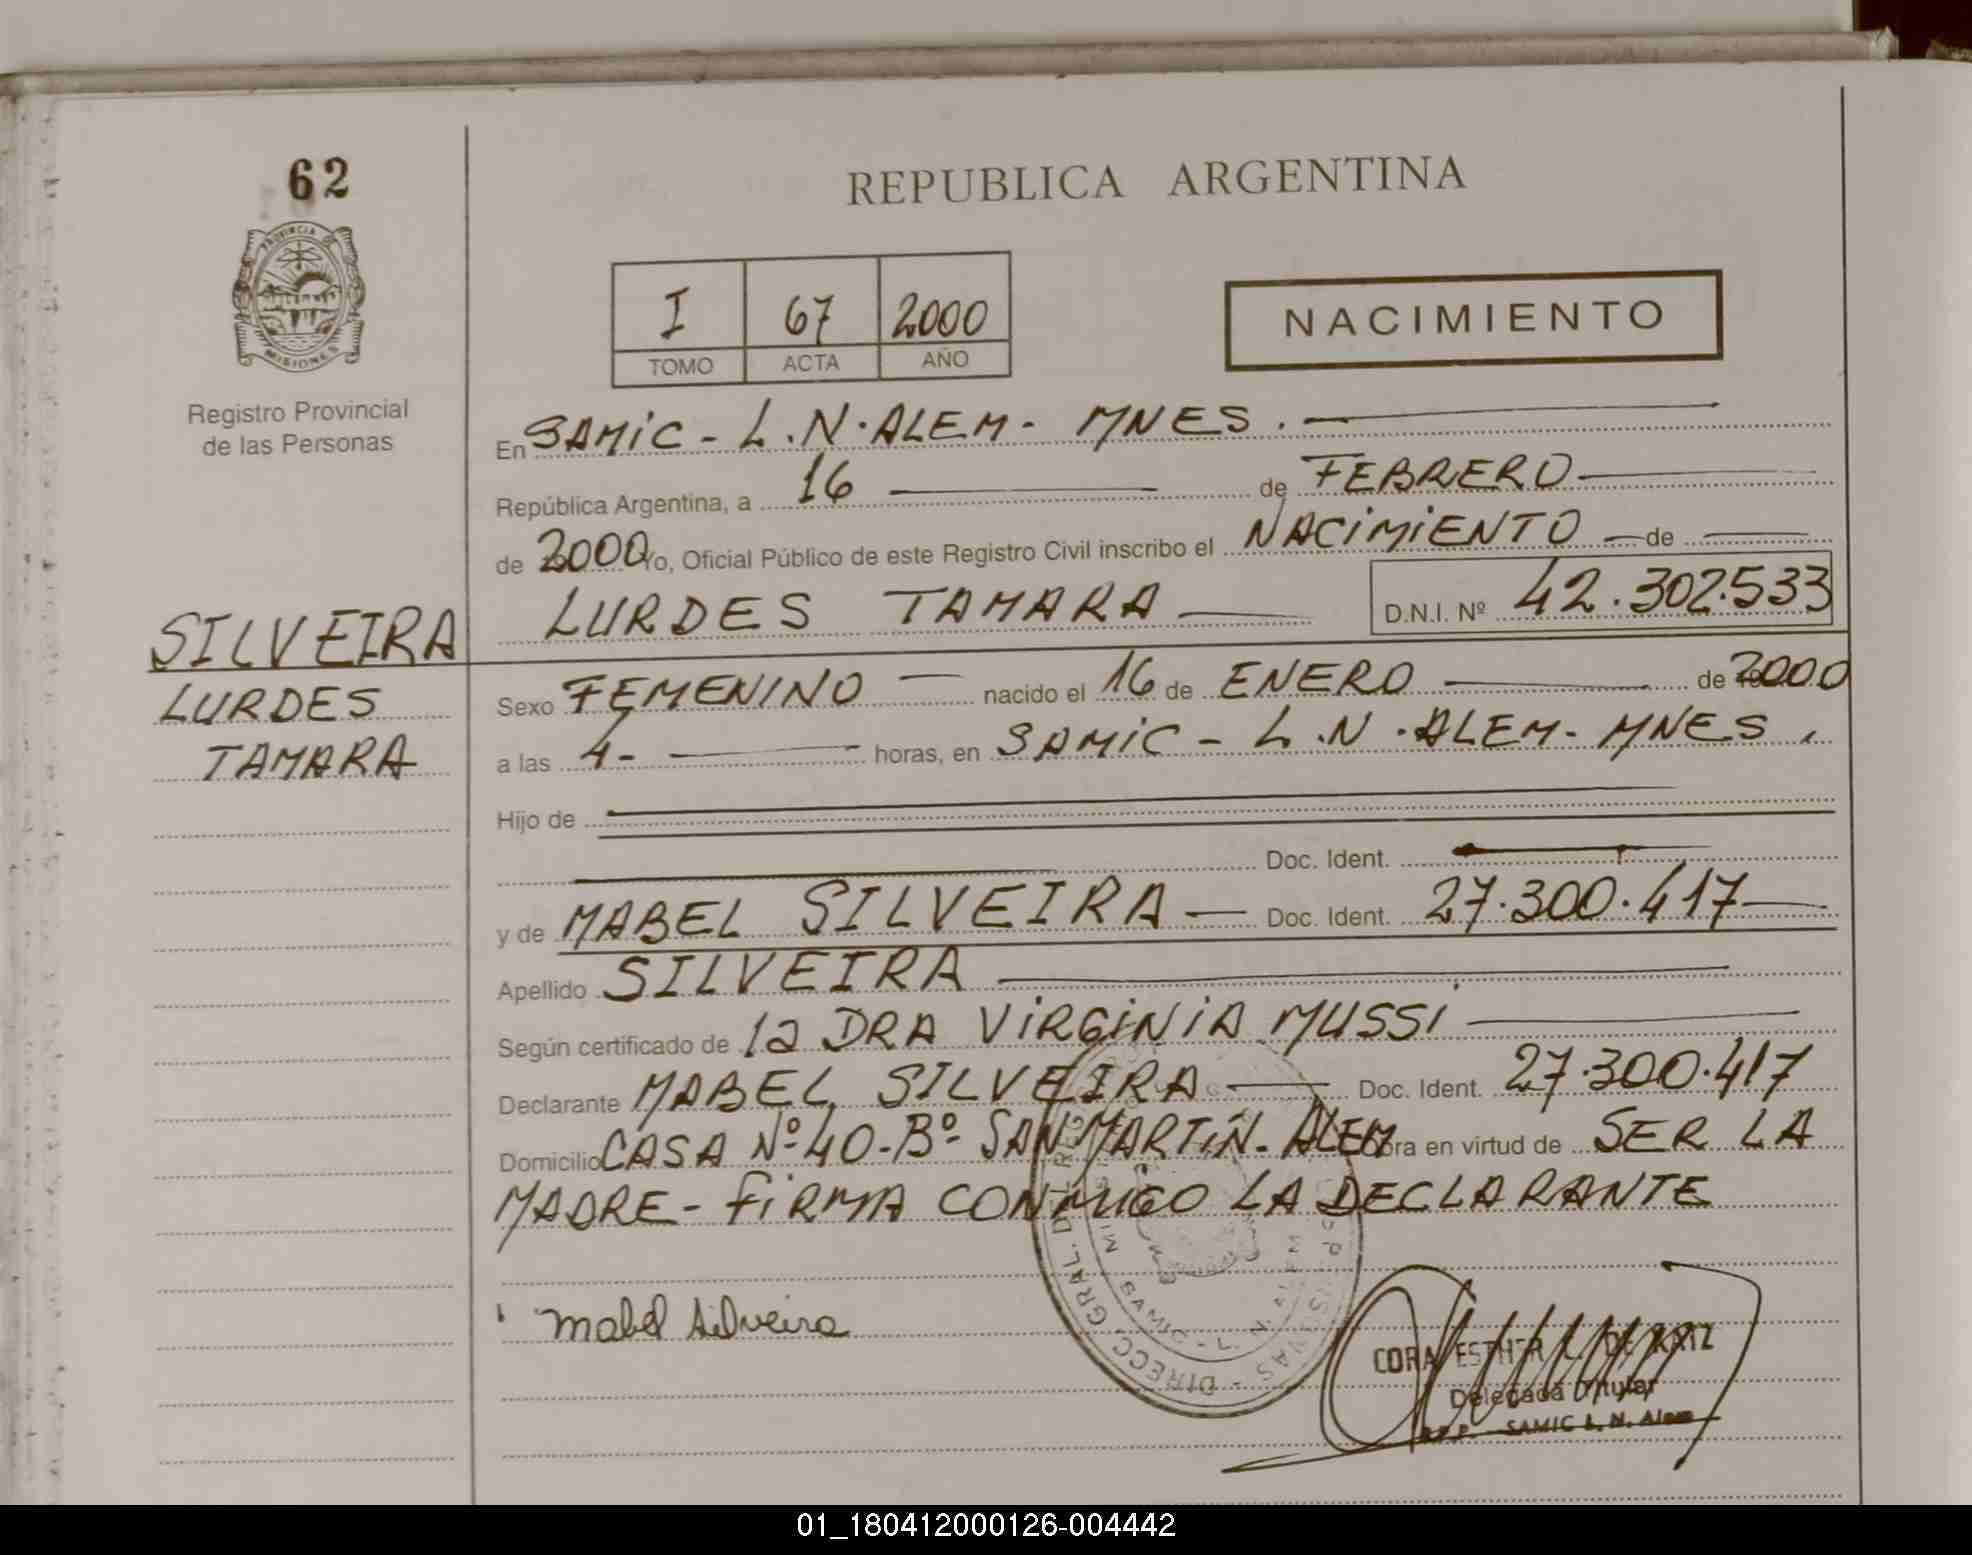 62
PROVINCIA DE
MISIONES
Registro Provincial
de las Personas
SILVEIRA
LURDES
TAMARA
REPUBLICA ARGENTINA
I 67 2000
TOMO ACTA AÑO
NACIMIENTO
En SAMIC - L.N. ALEM - MNES.
República Argentina, a 16 de FEBRERO
de 2000 Yo, Oficial Público de este Registro Civil inscribo el NACIMIENTO de
LURDES TAMARA D.N.I. Nº 42.302.533
Sexo FEMENINO nacido el 16 de ENERO de 2000
a las 4- horas, en SAMIC - L.N. ALEM - MNES.
Hijo de
Doc. Ident.
y de MABEL SILVEIRA Doc. Ident. 27.300.417
Apellido SILVEIRA
Según certificado de la DRA VIRGINIA MUSSI
Declarante MABEL SILVEIRA Doc. Ident. 27.300.417
Domicilio CASA Nº 40 - Bº SAN MARTIN - ALEM en virtud de SER LA
MADRE - FIRMA CONMIGO LA DECLARANTE
Mabel Silveira
DIRECC. GRAL. DEL
SAMIC - L. N. ALEM
CORA ESTHER DE
Delegada Titular
R.P.P. SAMIC L. N. Alem
01_180412000126-004442